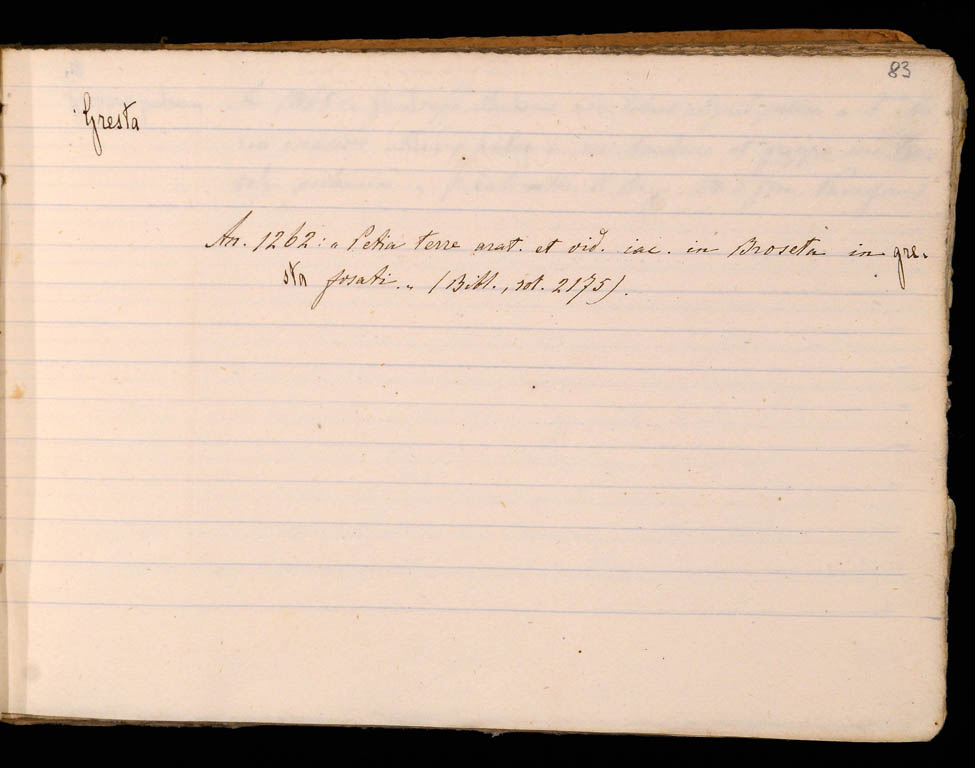 83
Gresta
An. 1262: „ Petia terre arat. et vid. iac. in Broseta in gre-
sta fosati. „ (Bibl., rot. 2175).